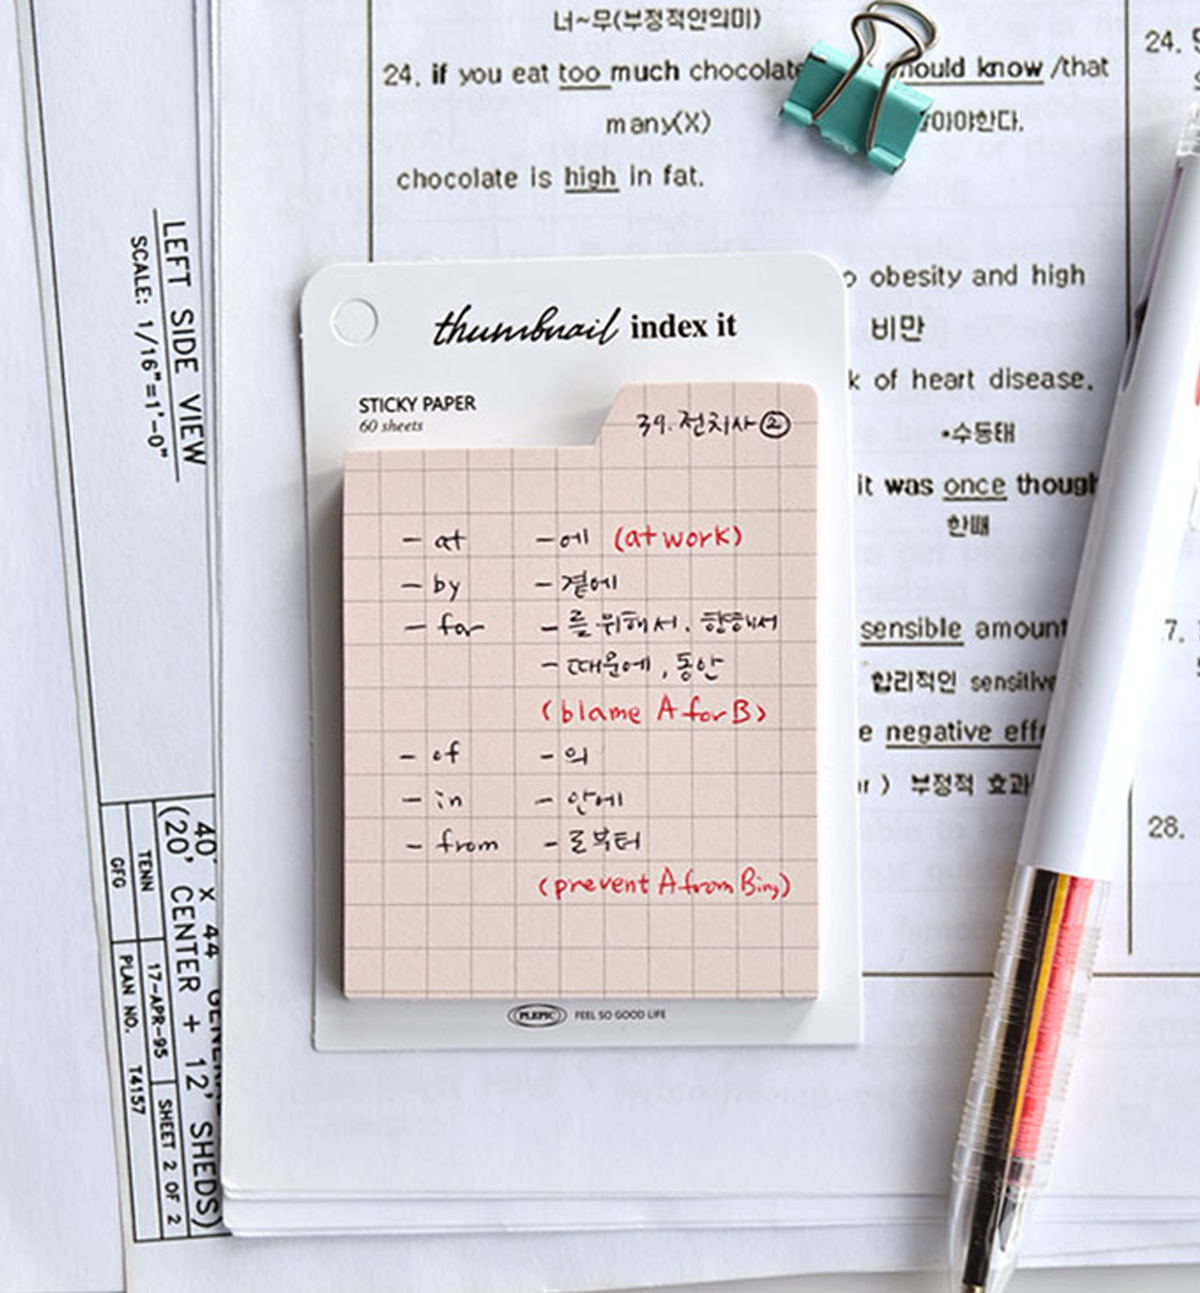 너~무(부정적인의미)
24. if you eat too much chocolate should know /that
many(X)
알아야한다.
chocolate is high in fat.
24.
obesity and high
비만
of heart disease.
•수동태
it was once though
한때
sensible amount
합리적인 sensitive
negative effe
) 부정적 효과
7.
28.
thumbnail index it
STICKY PAPER
60 sheets
39. 전치사②
- at - 에 (at work)
- by - 곁에
- for - 를 위해서. 향해서
- 때문에, 동안
(blame A for B)
- of - 의
- in - 안에
- from - 로부터
(prevent A from Bing)
PLEPIC FEEL SO GOOD LIFE
LEFT SIDE VIEW
SCALE: 1/16"=1'-0"
40' x 44' GENER
(20' CENTER + 12' SHEDS)
TENN 17-APR-95 SHEET 2 OF 2
GFG PLAN NO. T4157